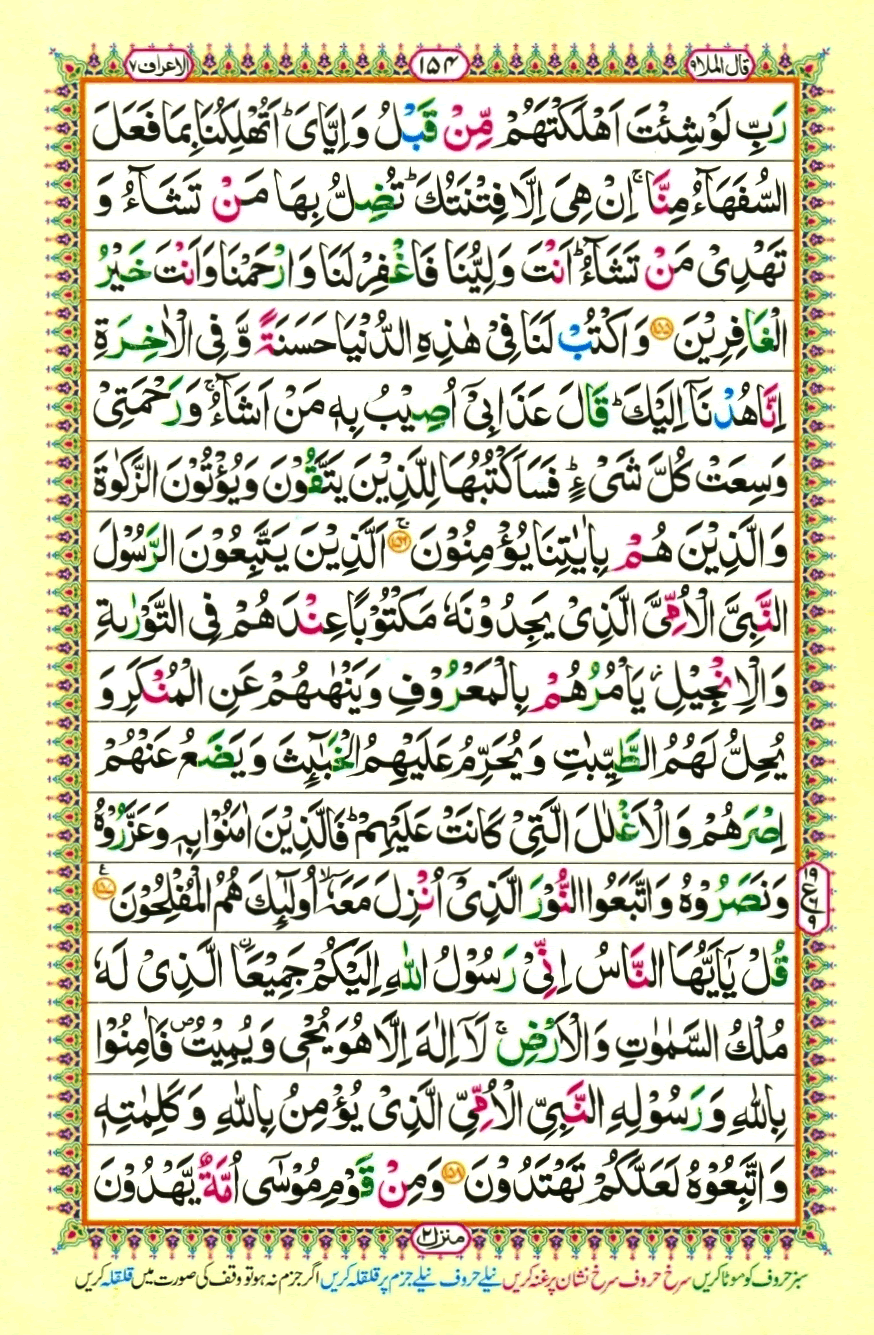 قال الملا ۹ ۱۵۴ الاعراف ۷
رَبِّ لَوْ شِئْتَ اَهْلَكْتَهُمْ مِّنْ قَبْلُ وَ اِیَّایَ ؕ اَتُهْلِكُنَا بِمَا فَعَلَ
السُّفَهَآءُ مِنَّا ۚ اِنْ هِیَ اِلَّا فِتْنَتُكَ ؕ تُضِلُّ بِهَا مَنْ تَشَآءُ وَ
تَهْدِیْ مَنْ تَشَآءُ ؕ اَنْتَ وَلِیُّنَا فَاغْفِرْ لَنَا وَ ارْحَمْنَا وَ اَنْتَ خَیْرُ
الْغَافِرِیْنَ ۝۱۵۵ وَ اكْتُبْ لَنَا فِیْ هٰذِهِ الدُّنْیَا حَسَنَةً وَّ فِی الْاٰخِرَةِ
اِنَّا هُدْنَاۤ اِلَیْكَ ؕ قَالَ عَذَابِیْۤ اُصِیْبُ بِهٖ مَنْ اَشَآءُ ۚ وَ رَحْمَتِیْ
وَسِعَتْ كُلَّ شَیْءٍ ؕ فَسَاَكْتُبُهَا لِلَّذِیْنَ یَتَّقُوْنَ وَ یُؤْتُوْنَ الزَّكٰوةَ
وَ الَّذِیْنَ هُمْ بِاٰیٰتِنَا یُؤْمِنُوْنَ ۝۱۵۶ۚ اَلَّذِیْنَ یَتَّبِعُوْنَ الرَّسُوْلَ
النَّبِیَّ الْاُمِّیَّ الَّذِیْ یَجِدُوْنَهٗ مَكْتُوْبًا عِنْدَهُمْ فِی التَّوْرٰىةِ
وَ الْاِنْجِیْلِ ؗ یَاْمُرُهُمْ بِالْمَعْرُوْفِ وَ یَنْهٰىهُمْ عَنِ الْمُنْكَرِ وَ
یُحِلُّ لَهُمُ الطَّیِّبٰتِ وَ یُحَرِّمُ عَلَیْهِمُ الْخَبٰٓىِٕثَ وَ یَضَعُ عَنْهُمْ
اِصْرَهُمْ وَ الْاَغْلٰلَ الَّتِیْ كَانَتْ عَلَیْهِمْ ؕ فَالَّذِیْنَ اٰمَنُوْا بِهٖ وَ عَزَّرُوْهُ
وَ نَصَرُوْهُ وَ اتَّبَعُوا النُّوْرَ الَّذِیْۤ اُنْزِلَ مَعَهٗۤ ۙ اُولٰٓىِٕكَ هُمُ الْمُفْلِحُوْنَ ۝۱۵۷ ع
قُلْ یٰۤاَیُّهَا النَّاسُ اِنِّیْ رَسُوْلُ اللّٰهِ اِلَیْكُمْ جَمِیْعَا ِ۟ۙ الَّذِیْ لَهٗ
مُلْكُ السَّمٰوٰتِ وَ الْاَرْضِ ۚ لَاۤ اِلٰهَ اِلَّا هُوَ یُحْیٖ وَ یُمِیْتُ ۪ فَاٰمِنُوْا
بِاللّٰهِ وَ رَسُوْلِهِ النَّبِیِّ الْاُمِّیِّ الَّذِیْ یُؤْمِنُ بِاللّٰهِ وَ كَلِمٰتِهٖ
وَ اتَّبِعُوْهُ لَعَلَّكُمْ تَهْتَدُوْنَ ۝۱۵۸ وَ مِنْ قَوْمِ مُوْسٰۤی اُمَّةٌ یَّهْدُوْنَ
منزل ۲
سبز حروف کو موٹا کریں سرخ حروف سرخ نشان پر غنہ کریں نیلے حروف نیلے جزم پر قلقلہ کریں اگر جزم نہ ہو تو وقف کی صورت میں قلقلہ کریں